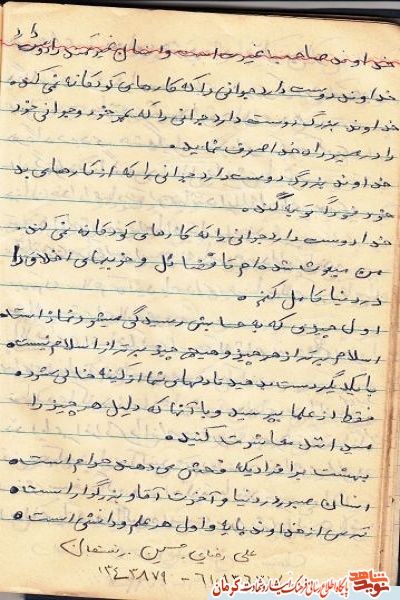 خداوند صاحب غیرت است و انسان غیرتمند را دوست دارد
خداوند دوست دارد جوانی را که کارهای کودکانه نمی کند.
خداوند بزرگ دوست دارد جوانی را که عمر خود و جوانی خود
را در مسیر راه خدا صرف نماید.
خداوند بزرگ دوست دارد جوانی را که از کارهای بد
خود فوراً توبه کند.
خدا دوست دارد جوانی را که کارهای کودکانه نمی کند.
من مبعوث شده ام تا فضائل و خوبیهای اخلاق را
در دنیا کامل کنم.
اول چیزی که به حسابش رسیدگی میشود نماز است.
اسلام برتر از هر چیز و هیچ چیز برتر از اسلام نیست.
با یکدیگر دست بدهید تا دلهای شما از کینه خالی شود.
فقط از علما بپرسید و با آنها که دلیل هر چیز را
میدانند معاشرت کنید.
بهشت بر افرادیکه فحش می دهند حرام است.
انسان صبور در دنیا و آخرت آقا و بزرگوار است.
ترس از خداوند پایه و اول هر علم و دانشی است.
علی رضایی حسین
پایگاه اطلاع رسانی فرهنگ ایثار و شهادت کرمان
نوید شاهد